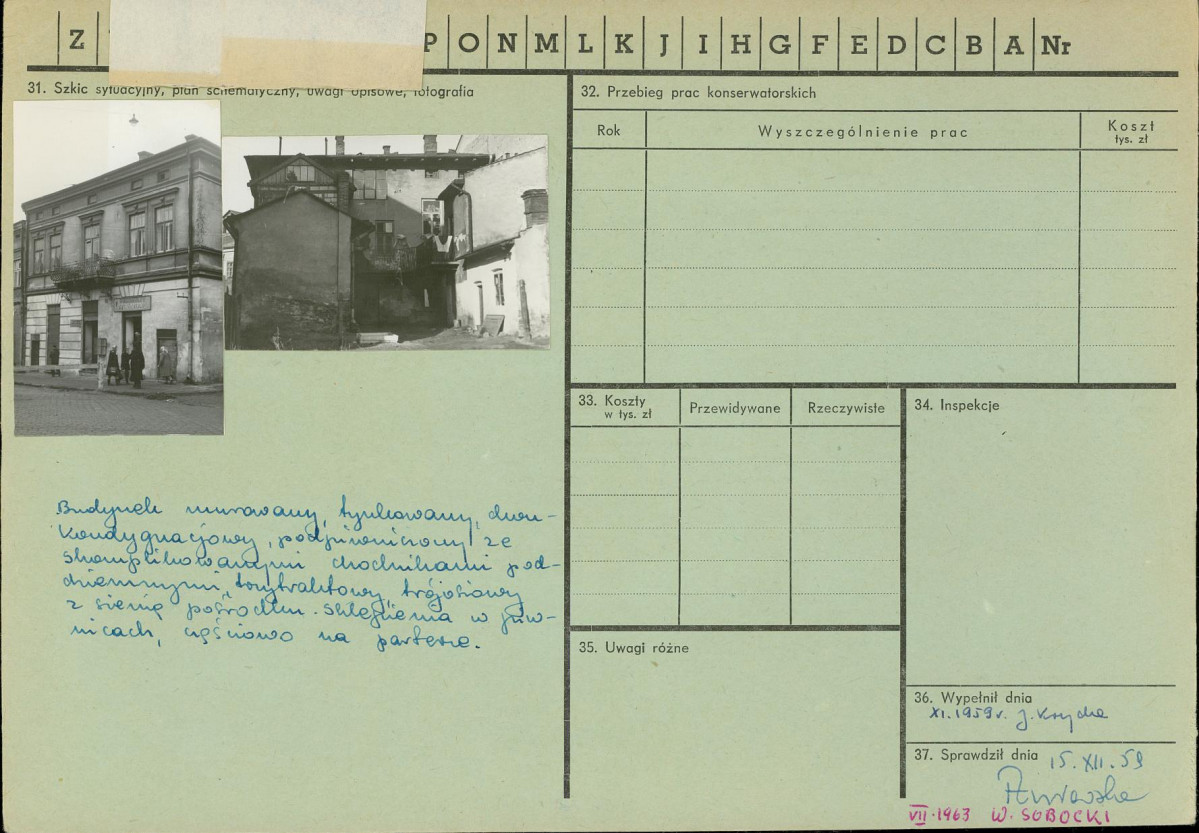 Z P O N M L K J I H G F E D C B A Nr
31. Szkic sytuacyjny, plan schematyczny, uwagi opisowe, fotografia
32. Przebieg prac konserwatorskich
Rok
Wyszczególnienie prac
Koszt
tys. zł
Budynek murowany, tynkowany, dwu-
kondygnacjowy, podpiwniczony ze
skomplikowanymi chodnikami pod-
ziemnymi, trzytraktowy, trójosiowy
z sienią pośrodku. Sklepienia w piw-
nicach, częściowo na parterze.
33. Koszty
w tys. zł
Przewidywane
Rzeczywiste
34. Inspekcje
35. Uwagi różne
36. Wypełnił dnia
XI. 1959 r. J. Krzycka
37. Sprawdził dnia
15. XII. 59
VII. 1963 W. SOBOCKI